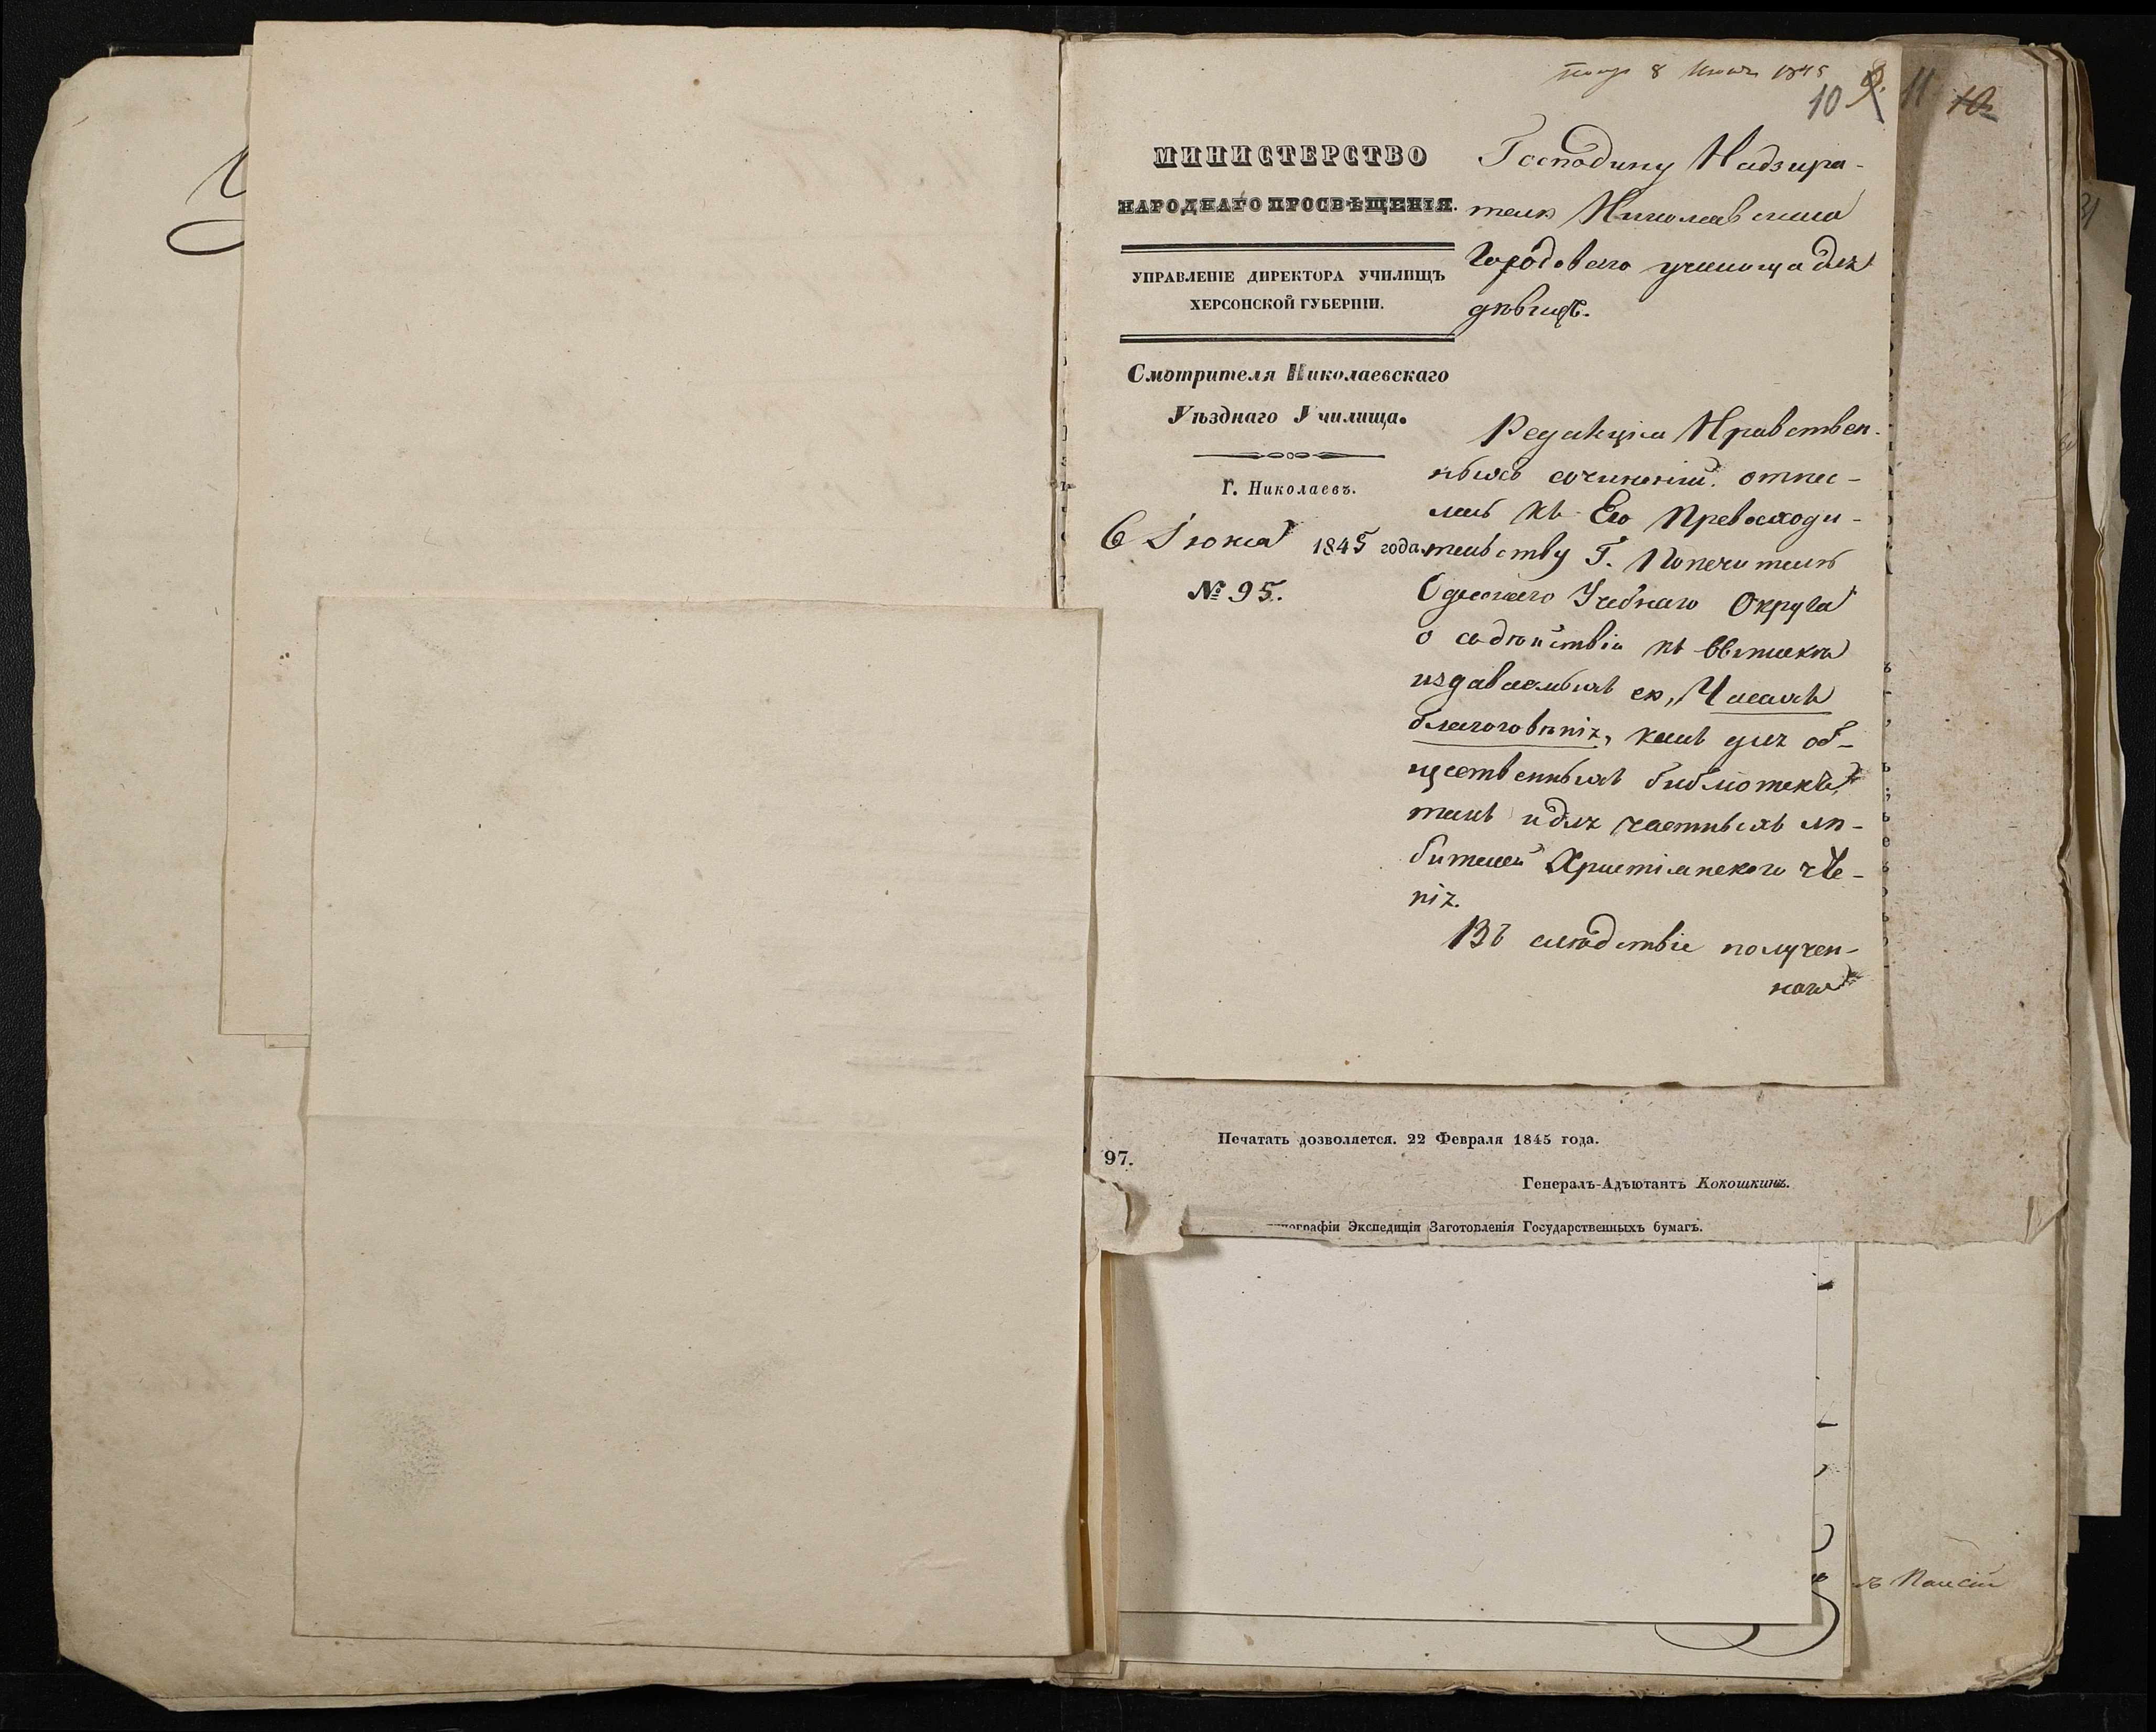 Полу 8 Июня 1845
10 9. 11 10
МИНИСТЕРСТВО
НАРОДНАГО ПРОСВѢЩЕНІЯ.
УПРАВЛЕНІЕ ДИРЕКТОРА УЧИЛИЩЪ
ХЕРСОНСКОЙ ГУБЕРНІИ.
Смотрителя Николаевскаго
Уѣзднаго Училища.
Г. Николаевъ.
6 Іюня 1845 года.
№ 95.
Господину Надзира-
телю Николаевскаго
Городоваго училища для
дѣвицъ.
Редакція Нравствен-
ныхъ сочиненій. отнес-
лась къ Его Превосходи-
тельству Г. Попечителю
Одесскаго Учебнаго Округа
о содѣйствіи къ выпискѣ
издаваемыхъ ею, Часахъ
благоговѣнія, какъ для об-
щественныхъ библіотекъ,
такъ и для частныхъ лю-
бителей Христіанскаго чте-
нія.
Въ слѣдствіе получен-
наго
Печатать дозволяется. 22 Февраля 1845 года.
97.
Генералъ-Адъютантъ Кокошкинъ.
типографіи Экспедиціи Заготовленія Государственныхъ бумагъ.